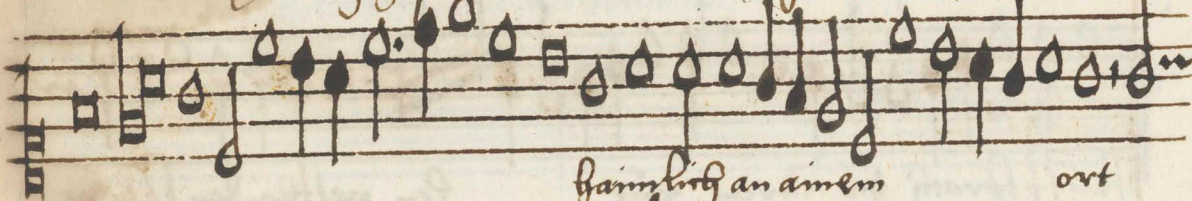 hainlich an ainem ort